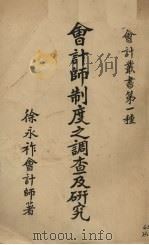 會計叢書第一種
會計師制度之調查及研究
徐永祚會計師著